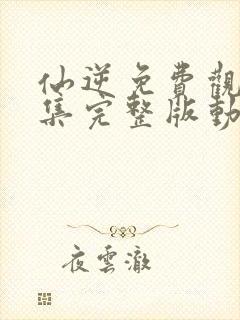 仙逆免費觀
集完整版動
夜雲澈